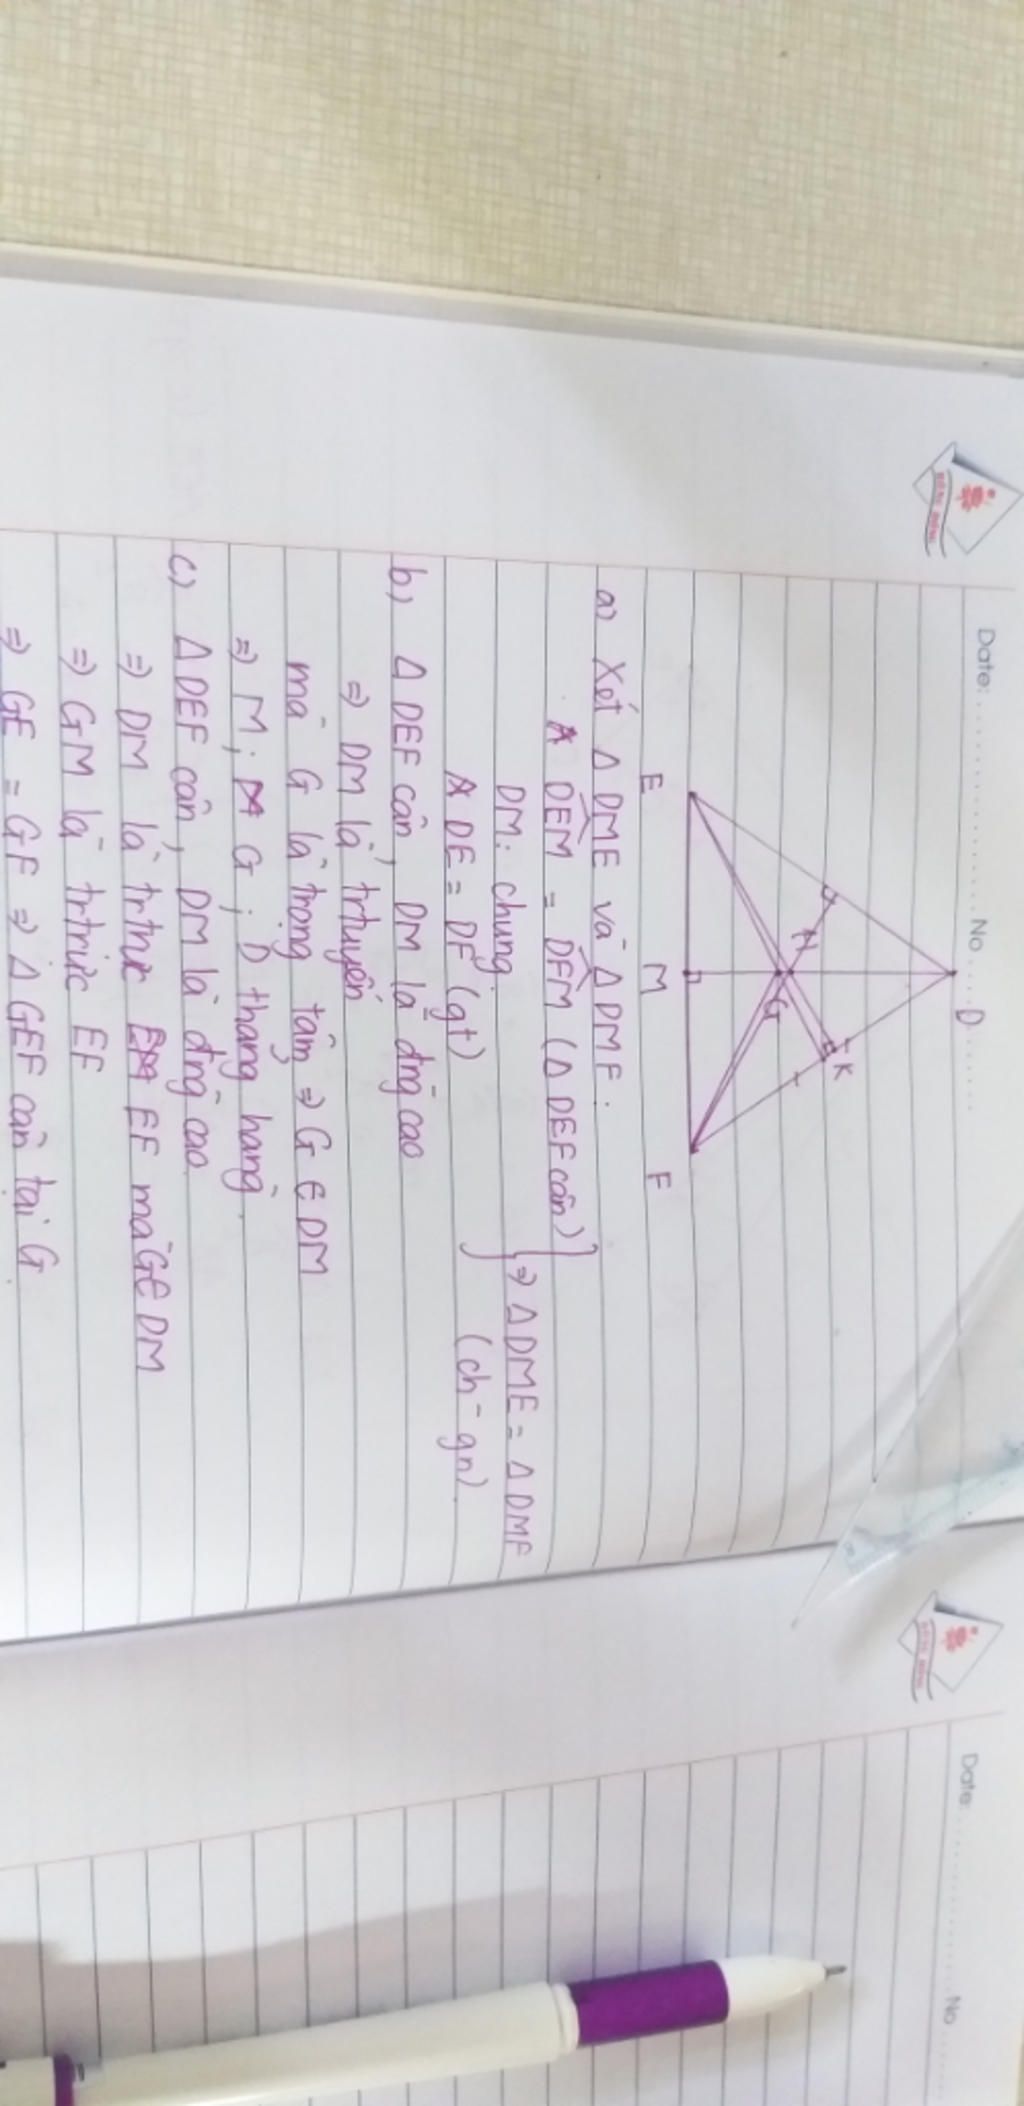 Date: No
D
K
H
G
E M F
a) Xét Δ DME và Δ DMF:
DEM = DFM (Δ DEF cân)
DM: chung. ⇒ Δ DME = Δ DMF
DE = DF (gt) (ch - gn).
b) Δ DEF cân, DM là đng cao
⇒ DM là trtuyến
mà G là trọng tâm ⇒ G ∈ DM
⇒ M; G; D thẳng hàng.
c) Δ DEF cân, DM là đng cao
⇒ DM là trtrực EF mà G ∈ DM
⇒ GM là trtrực EF
⇒ GE = GF ⇒ Δ GEF cân tại G.
Date: No